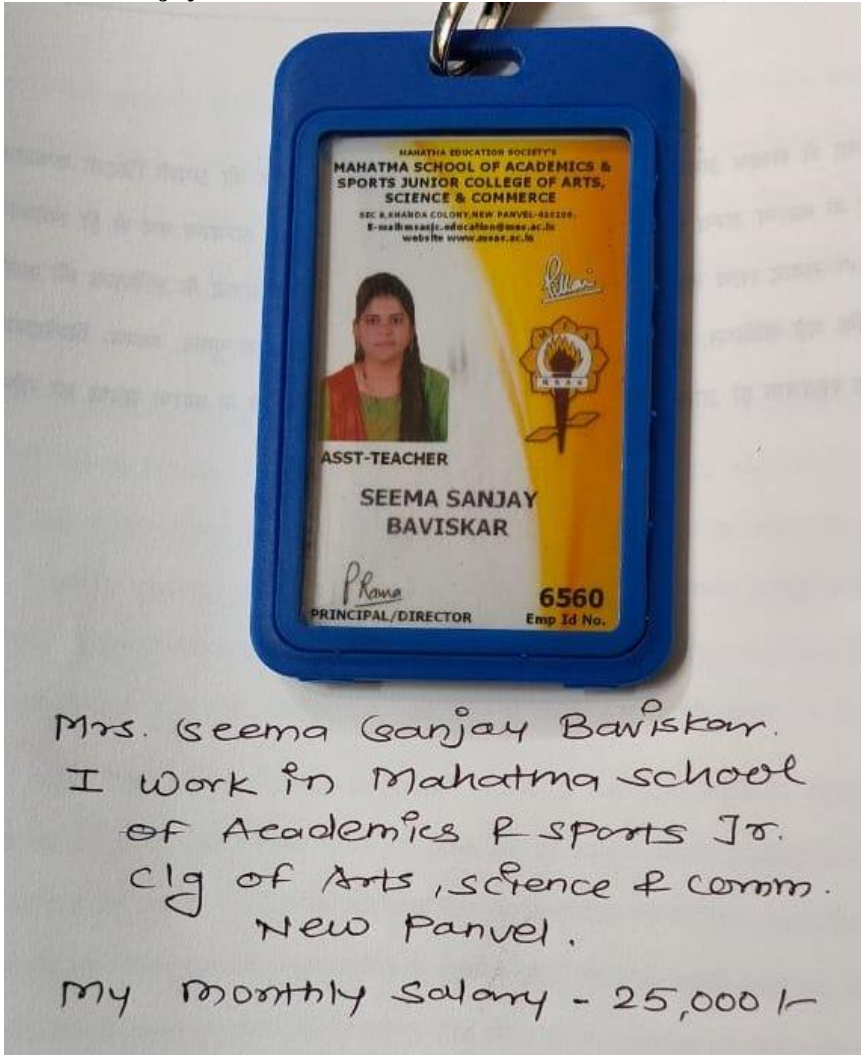 MAHATMA EDUCATION SOCIETY'S
MAHATMA SCHOOL OF ACADEMICS &
SPORTS JUNIOR COLLEGE OF ARTS,
SCIENCE & COMMERCE
SEC 8, KHANDA COLONY, NEW PANVEL-410206.
E-mail:msasjc.education@mes.ac.in
website www.msas.ac.in
Pillai
MES
MSAS
ASST-TEACHER
SEEMA SANJAY
BAVISKAR
P Rama
PRINCIPAL/DIRECTOR
6560
Emp Id No.
Mrs. Seema Sanjay Baviskar.
I work in Mahatma school
of Academics & sports Jr.
clg of Arts, science & comm.
New Panvel.
My monthly Salary - 25,000/-